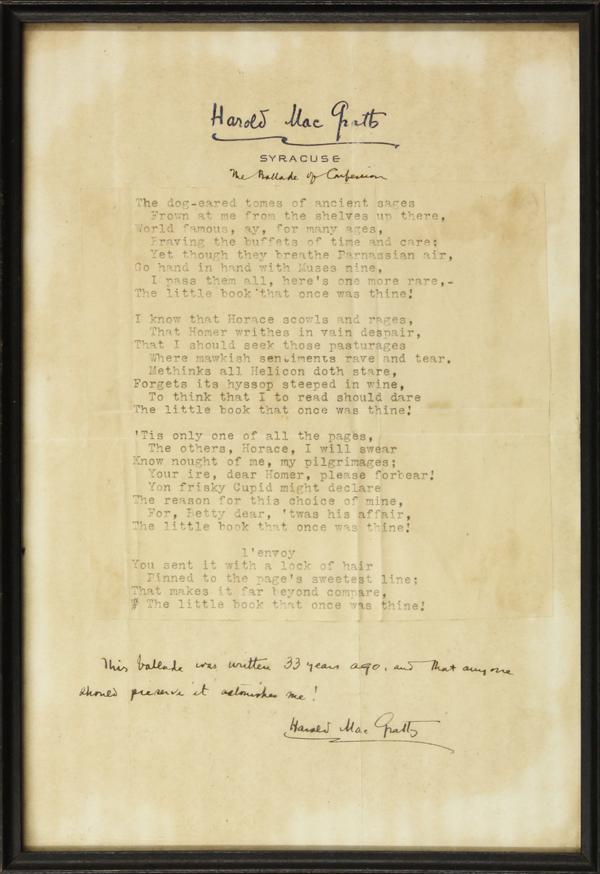 Harold Mac Grath
SYRACUSE
The Ballade of Confession
The dog-eared tomes of ancient sages
Frown at me from the shelves up there,
World famous, ay, for many ages,
Braving the buffets of time and care;
Yet though they breathe Parnassian air,
Go hand in hand with Muses nine,
I pass them all, here's one more rare,-
The little book that once was thine!
I know that Horace scowls and rages,
That Homer writhes in vain despair,
That I should seek those pasturages
Where mawkish sentiments rave and tear.
Methinks all Helicon doth stare,
Forgets its hyssop steeped in wine,
To think that I to read should dare
The little book that once was thine!
'Tis only one of all the pages,
The others, Horace, I will swear
Know nought of me, my pilgrimages;
Your ire, dear Homer, please forbear!
Yon frisky Cupid might declare
The reason for this choice of mine,
For, Betty dear, 'twas his affair,
The little book that once was thine!
l'envoy
You sent it with a lock of hair
Pinned to the page's sweetest line;
That makes it far beyond compare,
The little book that once was thine!
This ballade was written 33 years ago, and that anyone
should preserve it astonishes me!
Harold Mac Grath